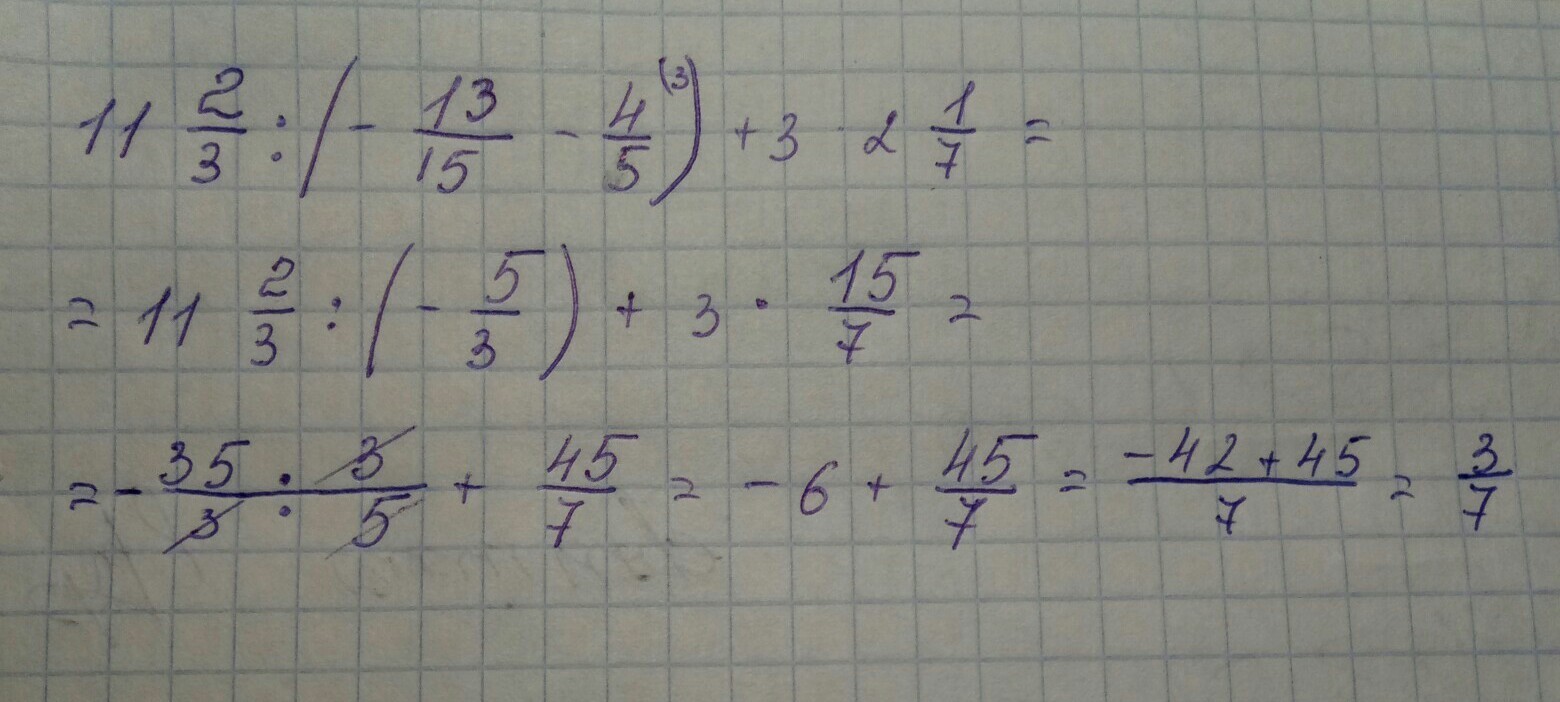 11 2/3 : (- 13/15 - 4/5 ⁽³⁾) + 3 · 2 1/7 =
= 11 2/3 : (- 5/3) + 3 · 15/7 =
= - 35 · 3 / 3 · 5 + 45/7 = - 6 + 45/7 = -42 + 45 / 7 = 3/7